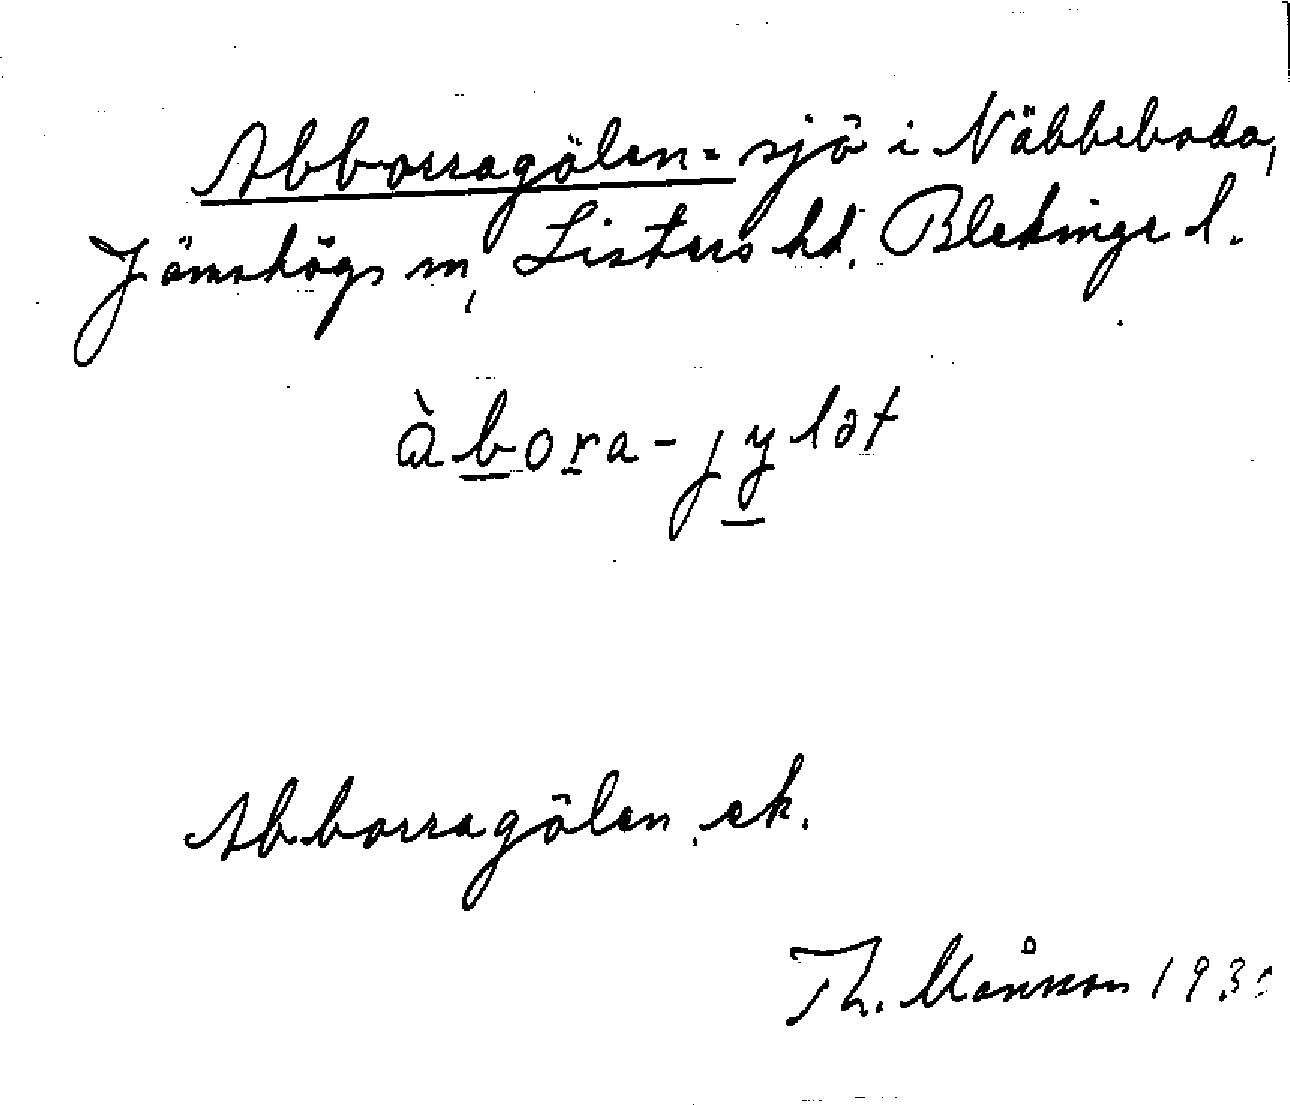 Abborragölen - sjö i Näbbeboda,
Jämshögs sn, Listers hd. Blekinge l.
àbora-jylət
Abborragölen, ek.
Th. Månsson